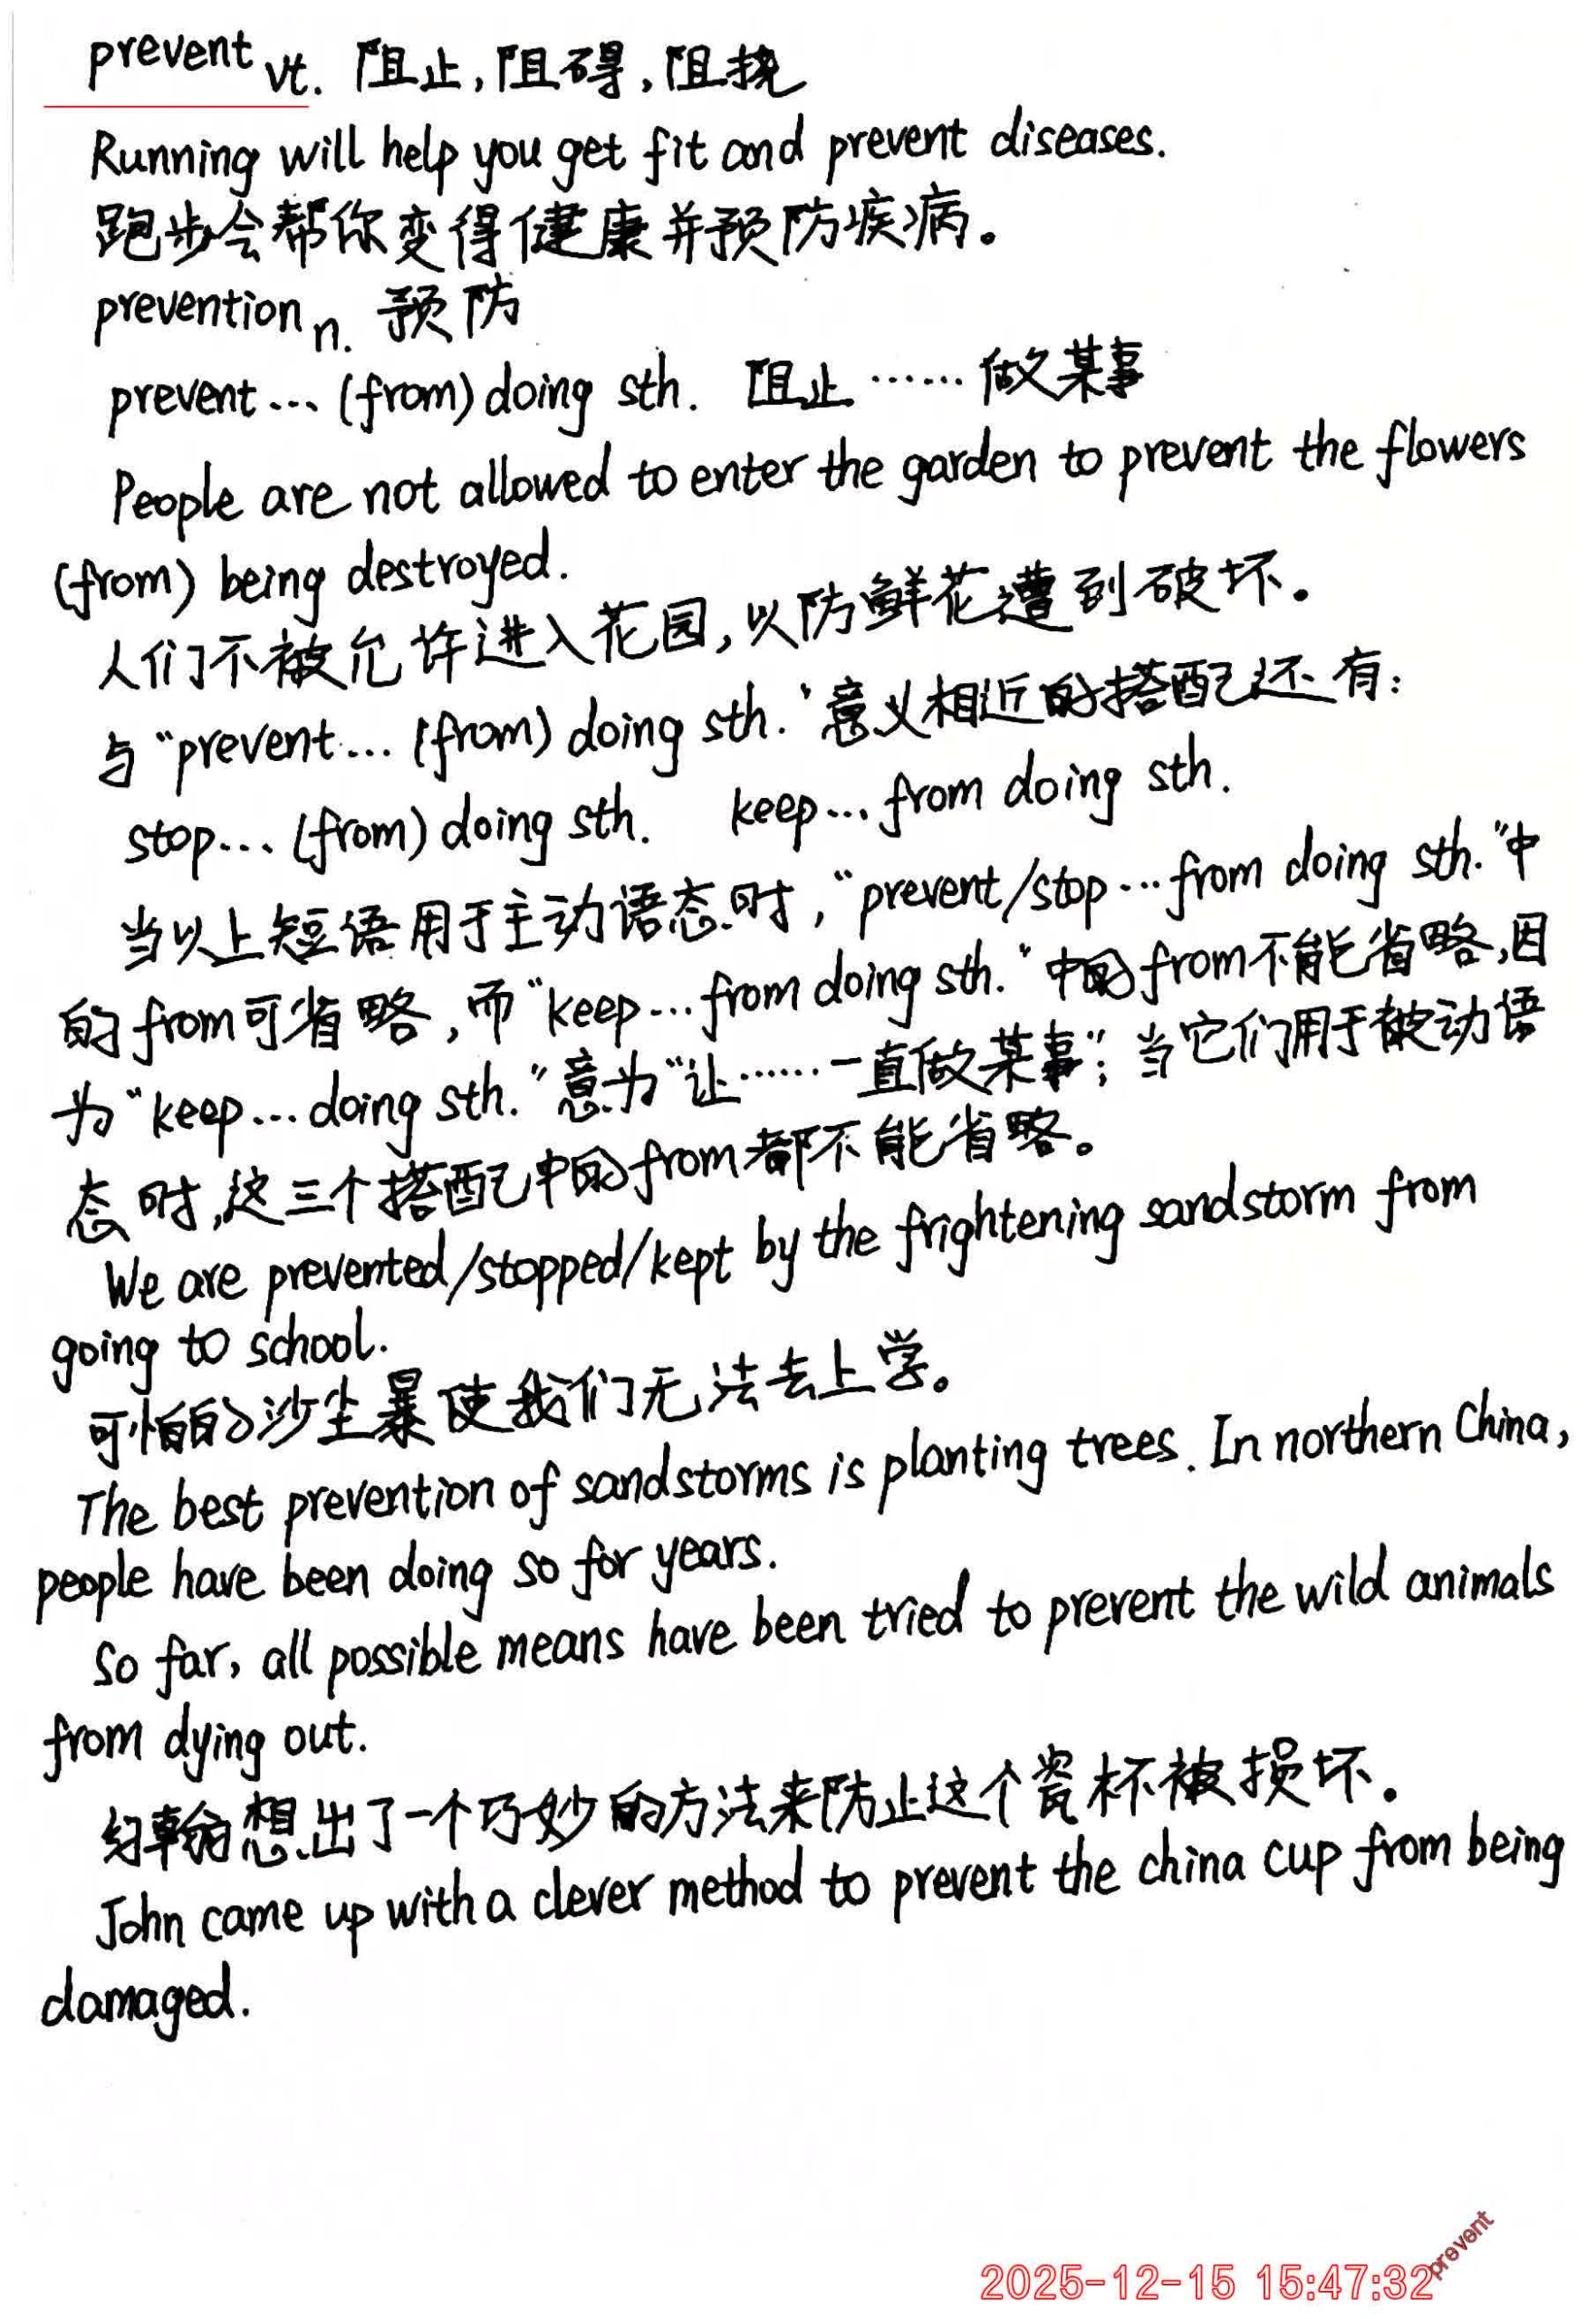 prevent vt. 阻止,阻碍,阻挠
Running will help you get fit and prevent diseases.
跑步会帮你变得健康并预防疾病。
prevention n. 预防
prevent... (from) doing sth. 阻止……做某事
People are not allowed to enter the garden to prevent the flowers
(from) being destroyed.
人们不被允许进入花园,以防鲜花遭到破坏。
与“prevent... (from) doing sth.'意义相近的搭配还有:
stop... (from) doing sth. keep... from doing sth.
当以上短语用于主动语态时,“prevent/stop...from doing sth.”中
的from可省略,而“keep...from doing sth.'中的from不能省略,因
为“keep...doing sth.”意为“让……一直做某事”;当它们用于被动语
态时,这三个搭配中的from都不能省略。
We are prevented/stopped/kept by the frightening sandstorm from
going to school.
可怕的沙尘暴使我们无法去上学。
The best prevention of sandstorms is planting trees. In northern China,
people have been doing so for years.
So far, all possible means have been tried to prevent the wild animals
from dying out.
约翰想出了一个巧妙的方法来防止这个瓷杯被损坏。
John came up with a clever method to prevent the china cup from being
damaged.
2025-12-15 15:47:32
prevent